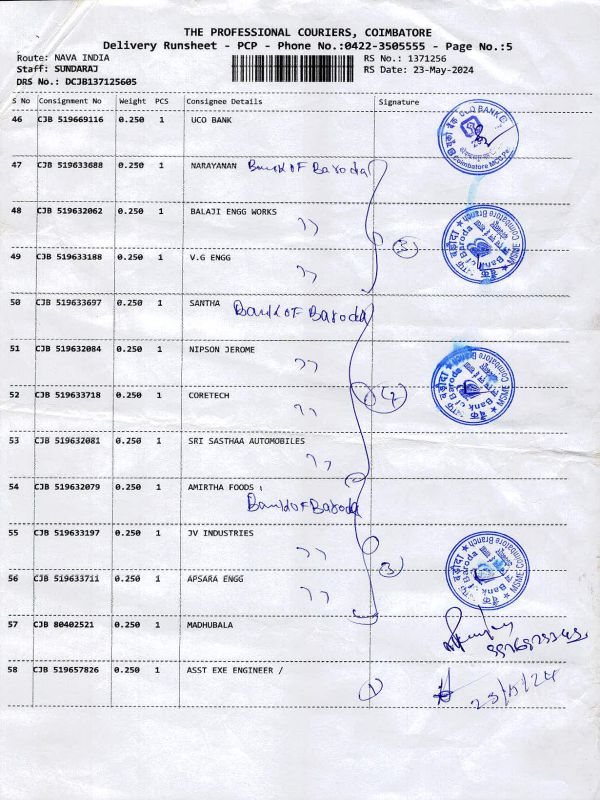 THE PROFESSIONAL COURIERS, COIMBATORE
Delivery Runsheet - PCP - Phone No.:0422-3505555 - Page No.:5
Route: NAVA INDIA
Staff: SUNDARAJ
DRS No.: DCJB137125605
RS No.: 1371256
RS Date: 23-May-2024
S No Consignment No Weight PCS Consignee Details Signature
46 CJB 519669116 0.250 1 UCO BANK
47 CJB 519633688 0.250 1 NARAYANAN Bank OF Baroda
48 CJB 519632062 0.250 1 BALAJI ENGG WORKS
(3)
49 CJB 519633188 0.250 1 V.G ENGG
50 CJB 519633697 0.250 1 SANTHA Bank OF Baroda
51 CJB 519632084 0.250 1 NIPSON JEROME
52 CJB 519633718 0.250 1 CORETECH
53 CJB 519632081 0.250 1 SRI SASTHAA AUTOMOBILES
54 CJB 519632079 0.250 1 AMIRTHA FOODS
Bank OF Baroda
55 CJB 519633197 0.250 1 JV INDUSTRIES
(3)
56 CJB 519633711 0.250 1 APSARA ENGG
57 CJB 80402521 0.250 1 MADHUBALA
58 CJB 519657826 0.250 1 ASST EXE ENGINEER /
(1)
UCO BANK
Bank of Baroda
MSME Coimbatore Branch
Bank of Baroda
MSME Coimbatore Branch
Bank of Baroda
MSME Coimbatore Branch